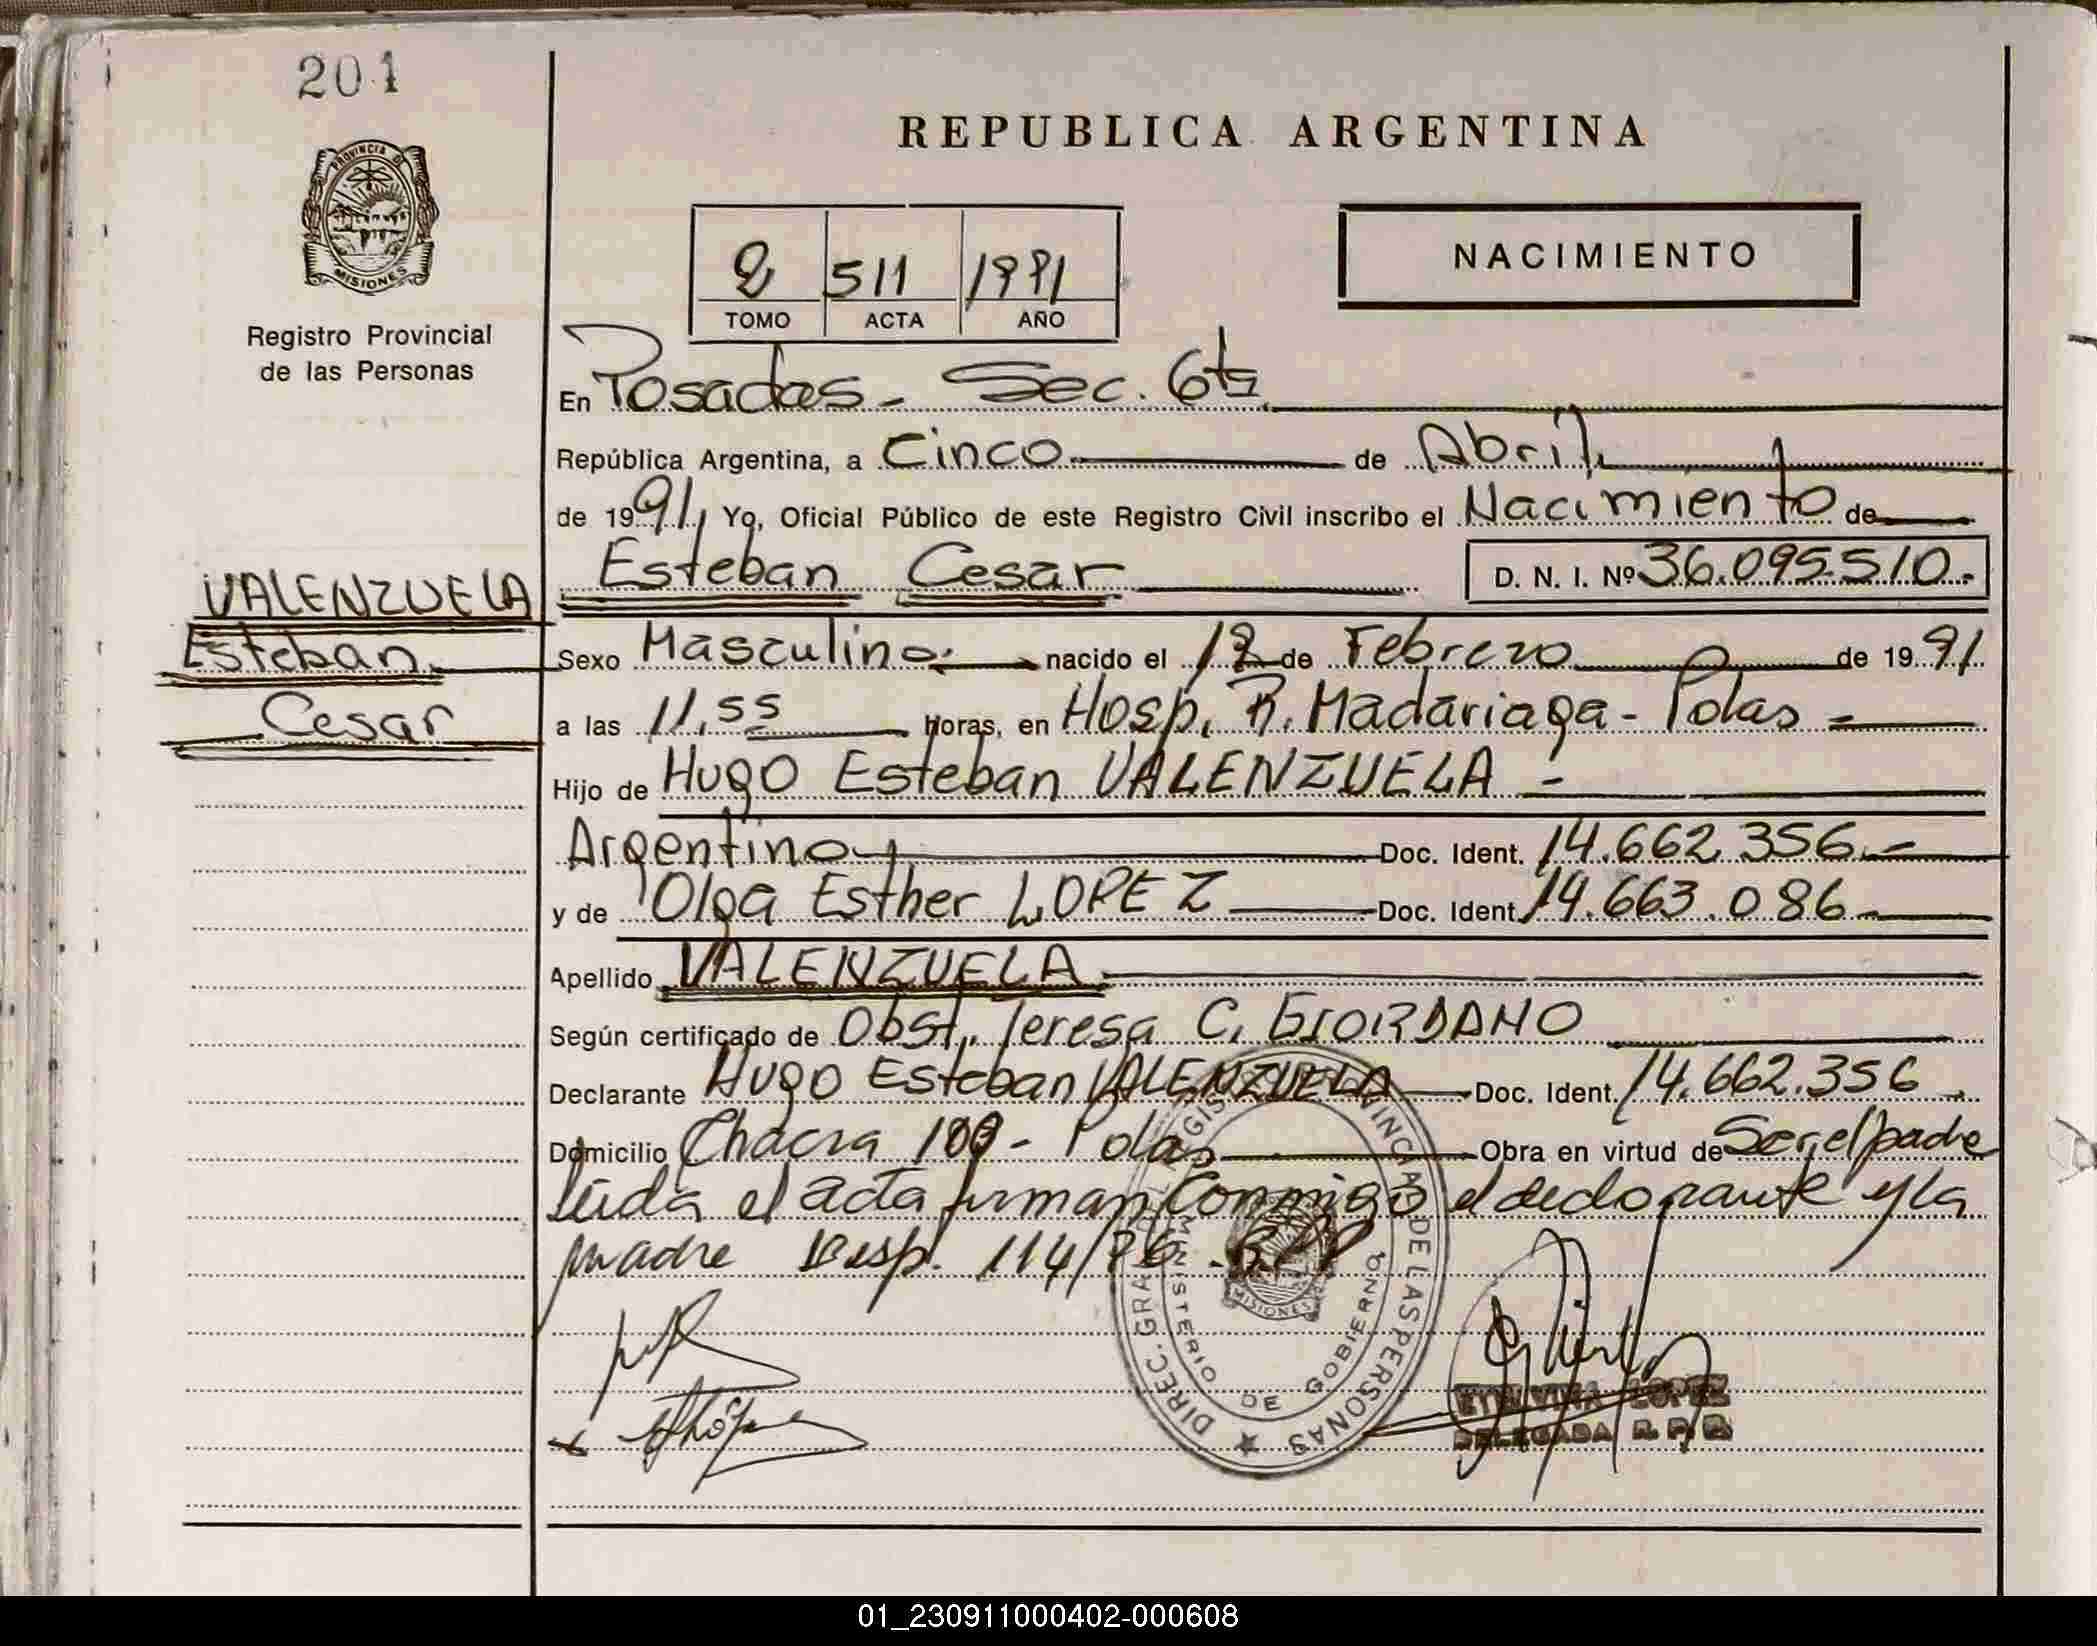 201
REPUBLICA ARGENTINA
PROVINCIA D
MISIONES
Registro Provincial
de las Personas
2 511 1991
TOMO ACTA AÑO
NACIMIENTO
En Posadas - Sec. 6ta
República Argentina, a Cinco de Abril
de 1991, Yo, Oficial Público de este Registro Civil inscribo el Nacimiento de
Esteban Cesar D. N. I. Nº 36.095.510.-
VALENZUELA
Esteban
Cesar
Sexo Masculino.- nacido el de Febrero de 1991
a las 11,55 horas, en Hosp. R. Madariaga - Pdas -
Hijo de Hugo Esteban VALENZUELA -
Argentino Doc. Ident. 14.662.356.-
y de Olga Esther LOPEZ Doc. Ident. 14.663.086
Apellido VALENZUELA
Según certificado de Obst. Teresa C. GIORDANO
Declarante Hugo Esteban VALENZUELA Doc. Ident. 14.662.356
Domicilio Chacra - Pdas Obra en virtud de Ser el padre
Leída el acta firman conmigo el declarante y la
madre Disp. 114/76
DIREC. GRAL. REGIS VINCIAL DE LAS PERSONAS
MINISTERIO DE GOBIERNO
MISIONES
ETELVINA LOPEZ
DELEGADA R. P. P.
01_230911000402-000608